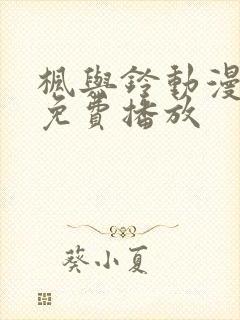 楓與鈴動漫
免費播放
葵小夏